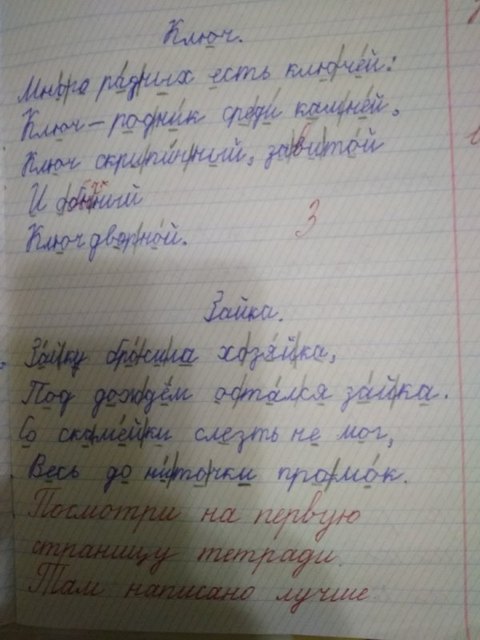 Ключ.
Много радных есть ключей:
Ключ – родник среди камней,
Ключ скрипичный, завитой
И обычный
Ключ дворной.
3
Зайка.
Зайку бросила хозяйка,
Под дождём остался зайка.
Со скамейки слезть не мог,
Весь до ниточки промок.
Посмотри на первую
страницу тетради.
Там написано лучше